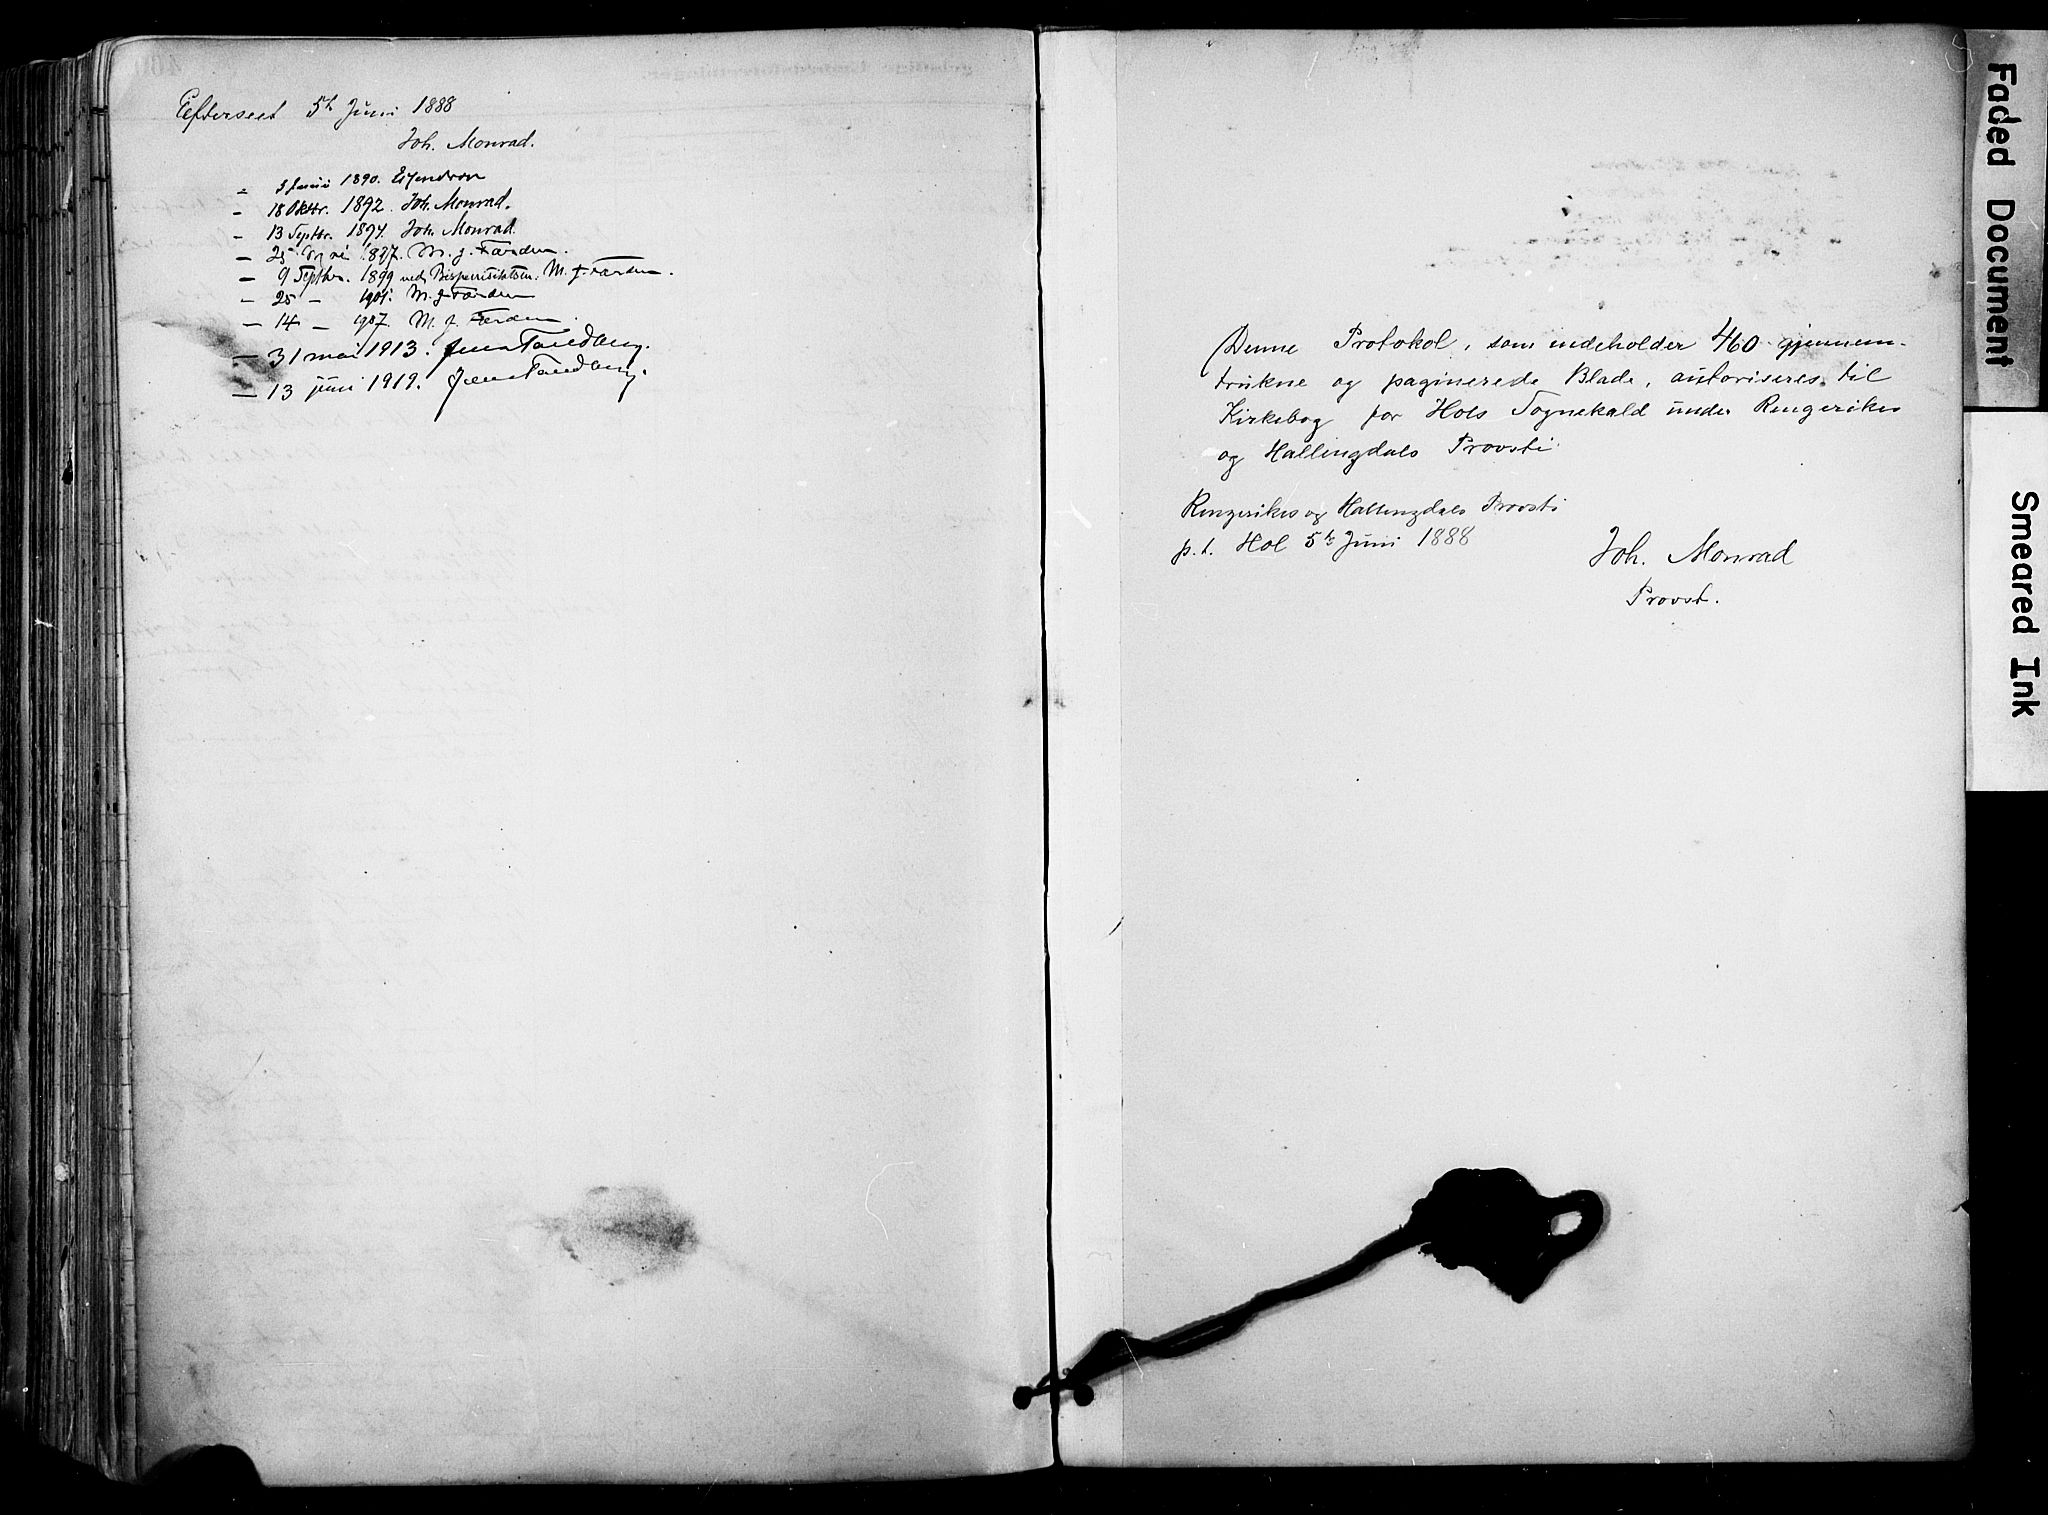 Efterseet 5te Juni 1888
Joh. Monrad.
" 5 Juni 1890.
" 18 Oktbr. 1892. Joh. Monrad.
" 13 Septbr. 1894. Joh. Monrad.
— 25 1897. M. J. Færden.
— 9 Septbr. 1899 ved Bispevisitatsen. M. J. Færden.
" 25 — 1901. M. J. Færden
— 14 — 1907. M. J. Færden.
— 31 mai 1913. Jens Tandberg.
— 13 juni 1919. Jens Tandberg.
Denne Protokol, som indeholder 460 gjennem-
trukne og paginerede Blade, autoriseres til
Kirkebog for Hols Sognekald under Ringerikes
og Hallingdals Provsti
Ringerikes og Hallingdals Provsti
p. t. Hol 5te Juni 1888
Joh. Monrad
Provst.
Faded Document
Smeared Ink